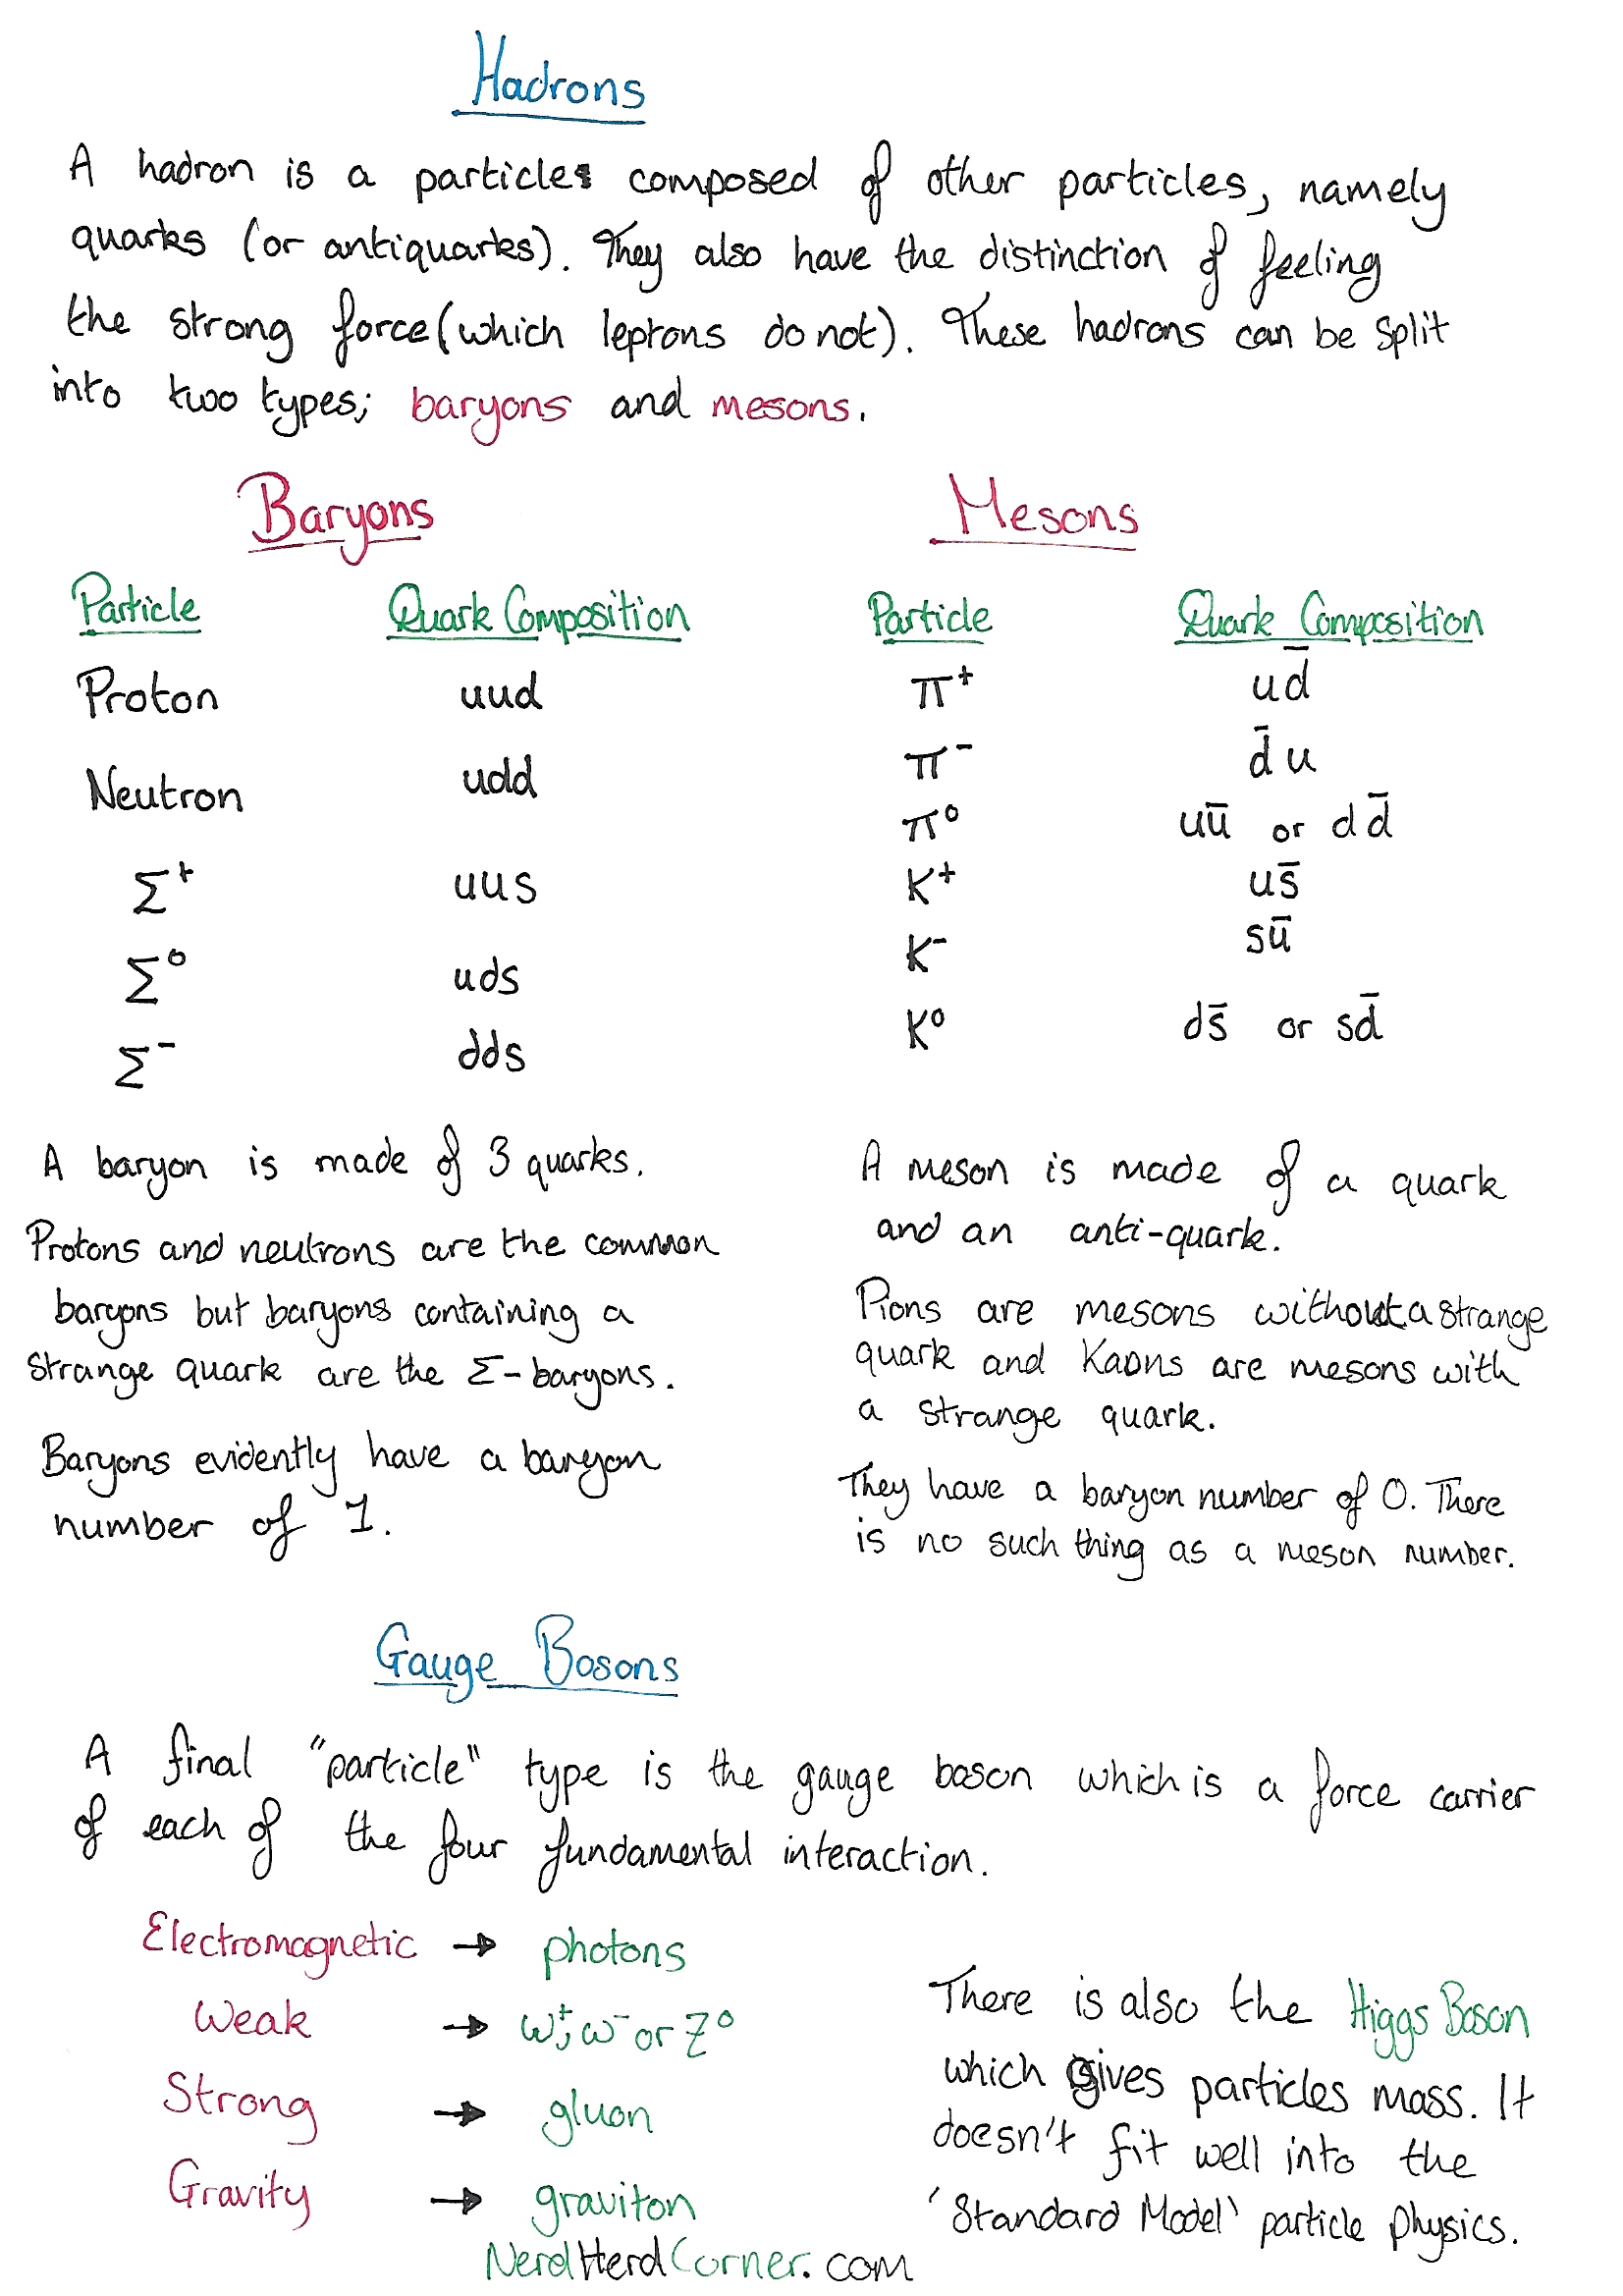 Hadrons
A hadron is a particles composed of other particles, namely
quarks (or antiquarks). They also have the distinction of feeling
the strong force (which leptons do not). These hadrons can be split
into two types; baryons and mesons.
Baryons
Particle Quark Composition
Proton uud
Neutron udd
Σ⁺ uus
Σ⁰ uds
Σ⁻ dds
A baryon is made of 3 quarks.
Protons and neutrons are the common
baryons but baryons containing a
strange quark are the Σ-baryons.
Baryons evidently have a baryon
number of 1.
Mesons
Particle Quark Composition
π⁺ ud̄
π⁻ d̄u
π⁰ uū or dd̄
K⁺ us̄
K⁻ sū
K⁰ ds̄ or sd̄
A meson is made of a quark
and an anti-quark.
Pions are mesons without a strange
quark and Kaons are mesons with
a strange quark.
They have a baryon number of 0. There
is no such thing as a meson number.
Gauge Bosons
A final "particle" type is the gauge boson which is a force carrier
of each of the four fundamental interaction.
Electromagnetic → photons
Weak → W⁺, W⁻ or Z⁰
Strong → gluon
Gravity → graviton
There is also the Higgs Boson
which gives particles mass. It
doesn't fit well into the
'Standard Model' particle physics.
NerdHerdCorner.com